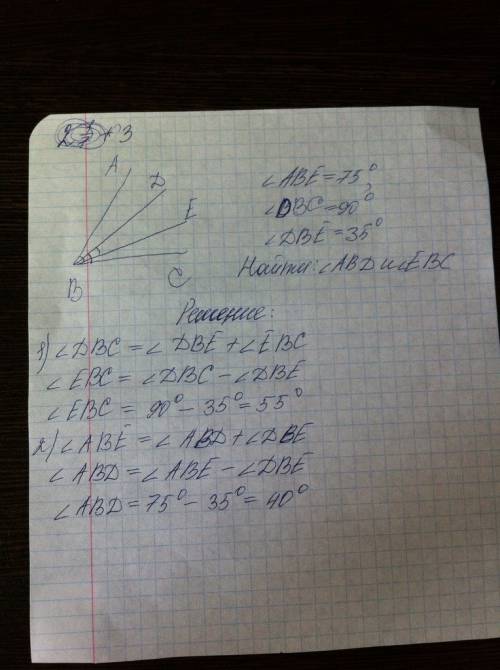 3
A
D
E
B
C
∠ABE = 75°
∠DBC = 90°
∠DBE = 35°
Найти: ∠ABD и ∠EBC
Решение:
1) ∠DBC = ∠DBE + ∠EBC
∠EBC = ∠DBC − ∠DBE
∠EBC = 90° − 35° = 55°
2) ∠ABE = ∠ABD + ∠DBE
∠ABD = ∠ABE − ∠DBE
∠ABD = 75° − 35° = 40°